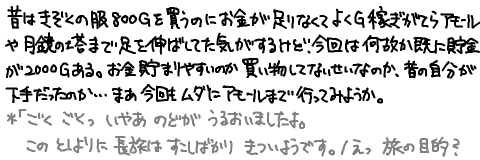 昔はきぞくの服800Gを買うのにお金が足りなくてよくG稼ぎがてらアモール
や月鏡の塔まで足を伸ばしてた気がするけど、今回は何故か既に貯金
が2000Gある。お金貯まりやすいのか買い物してないせいなのか、昔の自分が
下手だったのか…まあ今回もムダにアモールまで行ってみようか。
*「ごくごくっ いやあ のどが うるおいましたよ。
このとしよりに 長旅は すこしばかり きついようです。/えっ 旅の目的?